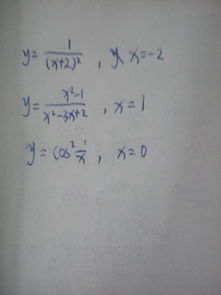 y = 1/(x+2)² , x = -2
y = x²-1/x²-3x+2 , x = 1
y = cos² 1/x , x = 0